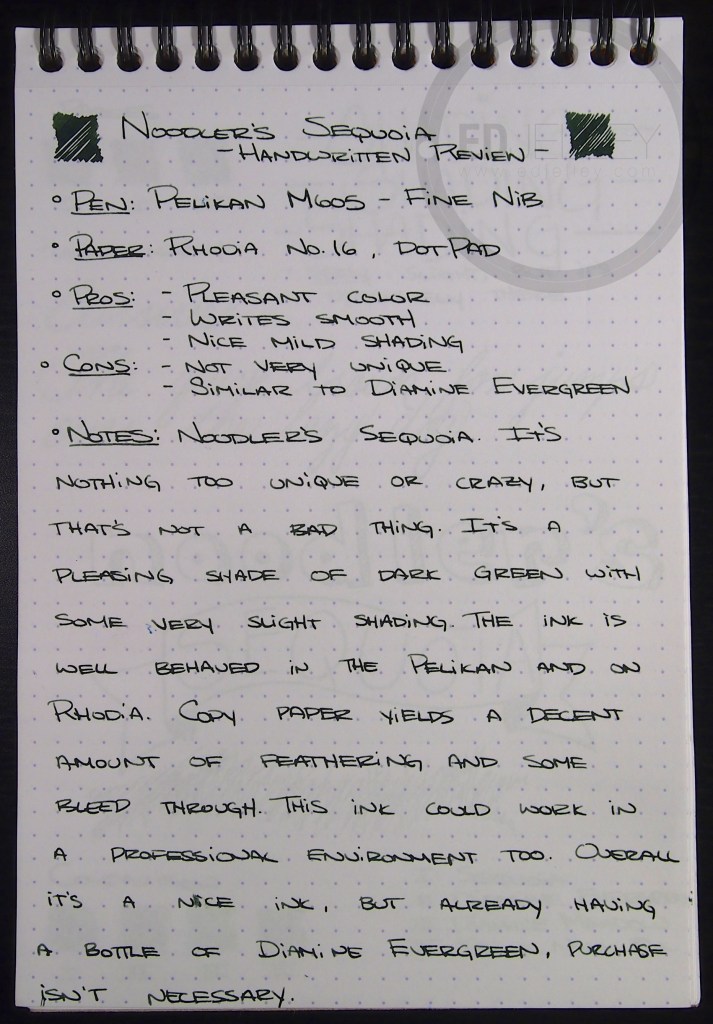 Noodler's Sequoia
- Handwritten Review -
ED JELLEY
www.edjelley.com
° Pen: Pelikan M605 - Fine Nib
° Paper: Rhodia No. 16, Dot Pad
° Pros: - Pleasant color
- Writes smooth
- Nice mild shading
° Cons: - Not very unique
- Similar to Diamine Evergreen
° Notes: Noodler's Sequoia. It's
nothing too unique or crazy, but
that's not a bad thing. It's a
pleasing shade of dark green with
some very slight shading. The ink is
well behaved in the Pelikan and on
Rhodia. Copy paper yields a decent
amount of feathering and some
bleed through. This ink could work in
a professional environment too. Overall
it's a nice ink, but already having
a bottle of Diamine Evergreen, purchase
isn't necessary.